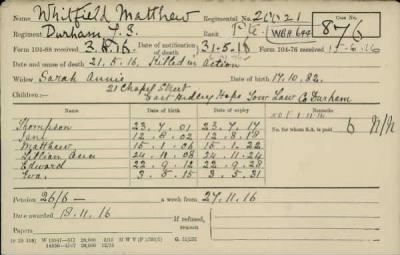 Name Whitfield Matthew Regimental No. 20021 Case No.
Regiment Durham L.I. Rank Pte. WBH 644 876
Form 104-88 received 3.8.16 Date of notification of death 31-5-16 Form 104-76 received
Date and cause of death 21.5.16 Killed in Action
Widow Sarah Annie Date of birth 17.10.82.
Children:— 21 Chapel Street
East Hedley Hope Tow Law Co Durham
Name Date of birth Date of expiry
Thompson 23.7.01 23.7.17
Jane 12.8.02 12.8.18
Matthew 15.1.06 15.1.22
Lillian Ann 24.11.08 24.11.24
Edward 22.9.12 22.9.28
Eva 3.5.15 3.5.31
No. for whom S.A. is paid 6 N/N
Pension 26/6— a week from 27.11.16
Date awarded 18.11.16 If refused, reason
Papers